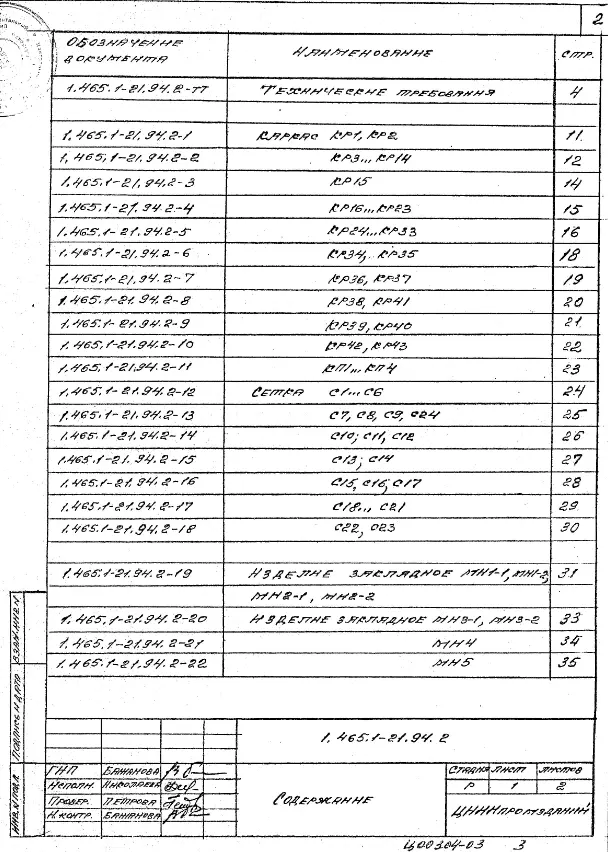 2
ОБОЗНАЧЕНИЕ ДОКУМЕНТА НАИМЕНОВАНИЕ СТР.
1.465.1-21.94.2-ТТ ТЕХНИЧЕСКИЕ ТРЕБОВАНИЯ 4
1.465.1-21.94.2-1 КАРКАС КР1, КР2 11
1.465.1-21.94.2-2 КР3...КР14 12
1.465.1-21.94.2-3 КР15 14
1.465.1-21.94.2-4 КР16...КР23 15
1.465.1-21.94.2-5 КР24...КР33 16
1.465.1-21.94.2-6 КР34, КР35 18
1.465.1-21.94.2-7 КР36, КР37 19
1.465.1-21.94.2-8 КР38, КР41 20
1.465.1-21.94.2-9 КР39, КР40 21
1.465.1-21.94.2-10 КР42, КР43 22
1.465.1-21.94.2-11 КП1...КП4 23
1.465.1-21.94.2-12 СЕТКА С1...С6 24
1.465.1-21.94.2-13 С7, С8, С9, С24 25
1.465.1-21.94.2-14 С10; С11, С12 26
1.465.1-21.94.2-15 С13; С14 27
1.465.1-21.94.2-16 С15, С16, С17 28
1.465.1-21.94.2-17 С18... С21 29
1.465.1-21.94.2-18 С22, С23 30
1.465.1-21.94.2-19 ИЗДЕЛИЕ ЗАКЛАДНОЕ МН1-1, МН1-2, 31
МН2-1, МН2-2
1.465.1-21.94.2-20 ИЗДЕЛИЕ ЗАКЛАДНОЕ МН3-1, МН3-2 33
1.465.1-21.94.2-21 МН4 34
1.465.1-21.94.2-22 МН5 35
ВЗАМ.ИНВ.N
ПОДПИСЬ И ДАТА
ИНВ.N ПОДЛ.
1.465.1-21.94.2
ГИП БАЖАНОВА
ИСПОЛН.
ПРОВЕР. ПЕТРОВА
Н.КОНТР. БАЖАНОВА
СОДЕРЖАНИЕ
СТАДИЯ ЛИСТ ЛИСТОВ
Р 1 2
ЦНИИПРОМЗДАНИЙ
Ц00304-03 3